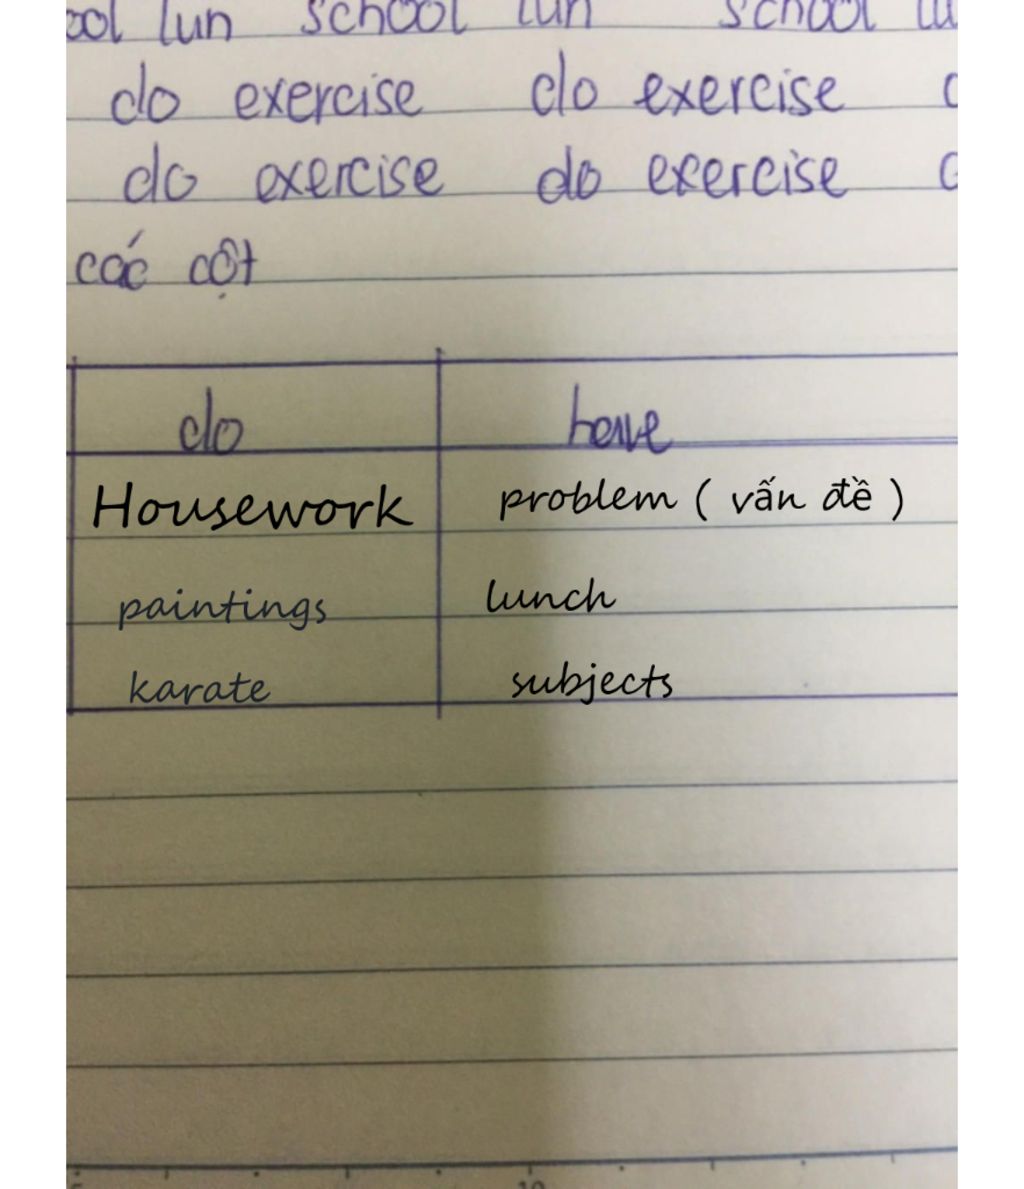 ool lun school lun school lu
do exercise do exercise
do exercise do exercise
các cột
do have
Housework problem ( vấn đề )
paintings lunch
karate subjects
10